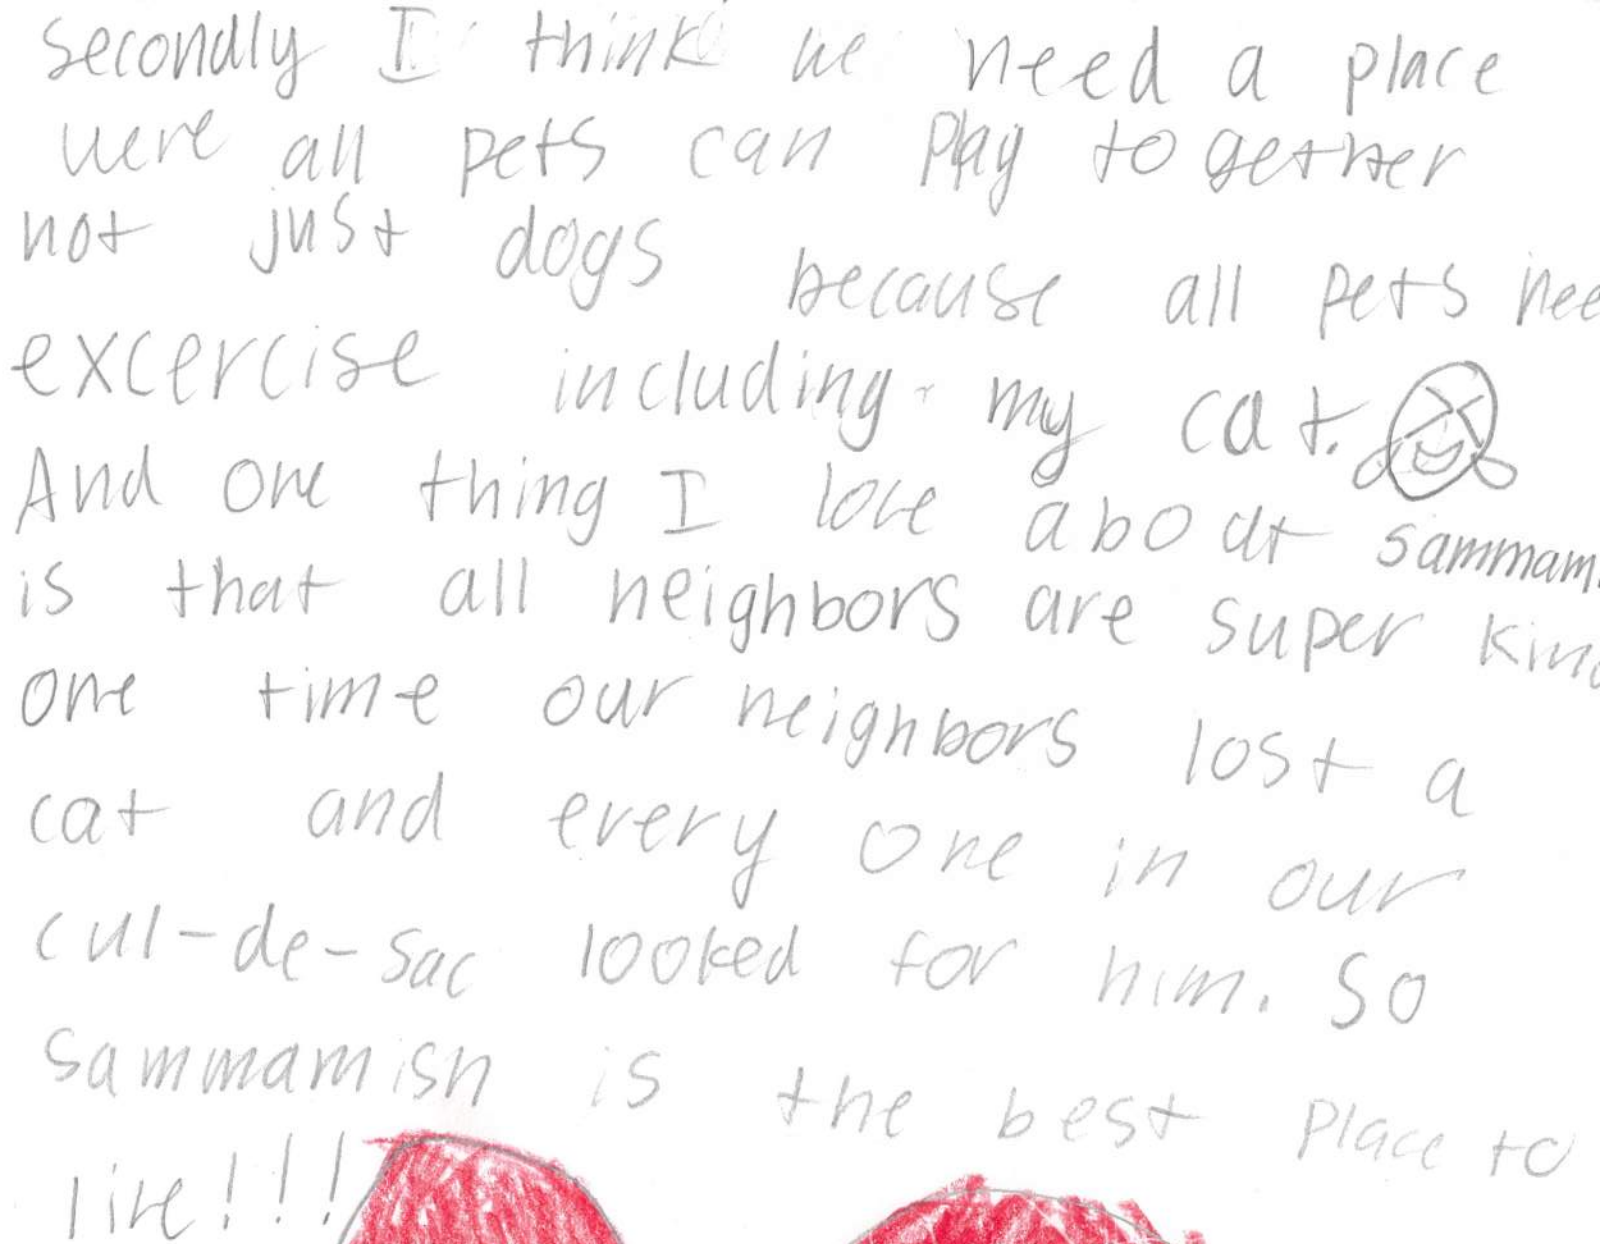 secondly I think we need a place
were all pets can play to gether
not just dogs because all pets nee
excercise including my cat.
And one thing I love about sammam
is that all neighbors are super kind
one time our neighbors lost a
cat and every one in our
cul-de-sac looked for him. So
Sammamish is the best place to
live!!!